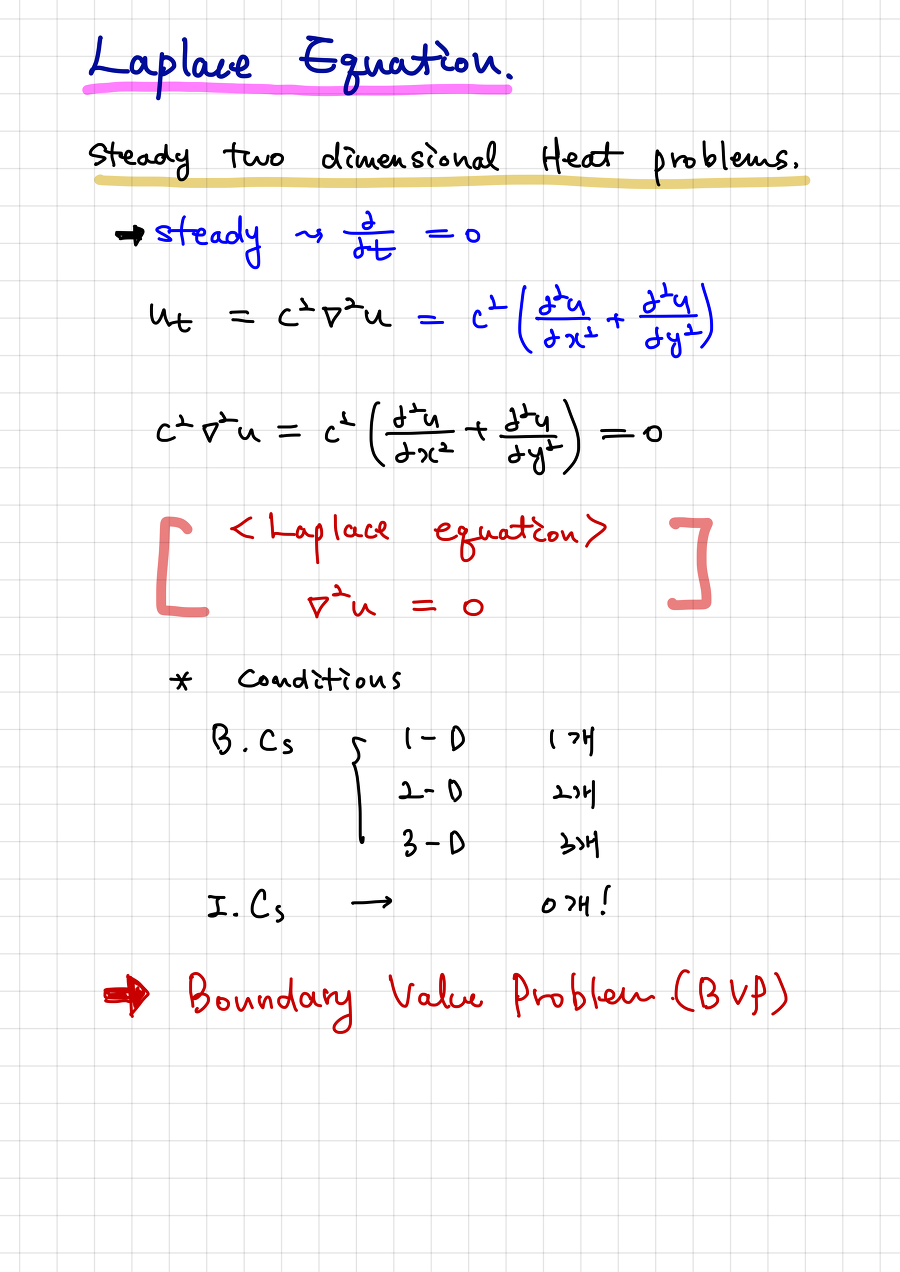 Laplace Equation.
Steady two dimensional Heat problems.
➡ steady ⇝ ∂/∂t = 0
u_t = c²∇²u = c²(∂²u/∂x² + ∂²u/∂y²)
c²∇²u = c²(∂²u/∂x² + ∂²u/∂y²) = 0
[ <Laplace equation> ]
∇²u = 0
* Conditions
B.Cs { 1-D 1개
2-D 2개
3-D 3개
I.Cs → 0개!
➡ Boundary Value Problem (BVP)